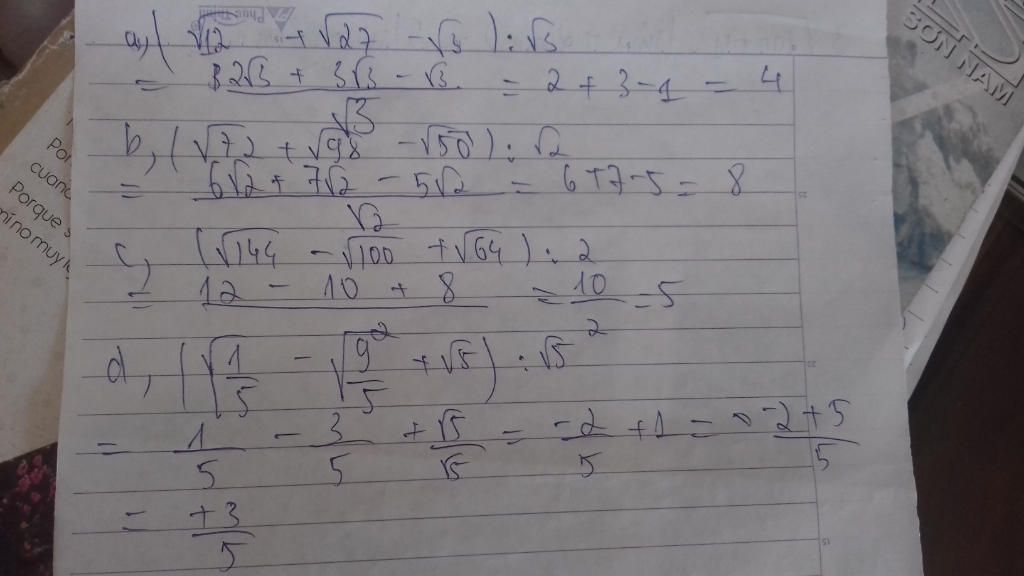 a, (√12 + √27 - √3) : √3
= 2√3 + 3√3 - √3 / √3 = 2 + 3 - 1 = 4
b, (√72 + √98 - √50) : √2
= 6√2 + 7√2 - 5√2 / √2 = 6 + 7 - 5 = 8
c, (√144 - √100 + √64) : 2
= 12 - 10 + 8 / 2 = 10 / 2 = 5
d, (√1/5 - √9/5 + √5) : √5
= 1/5 - 3/5 + √5/√5 = -2/5 + 1 = -2+5/5
= +3/5
SON NAM
Porque s
mino muy